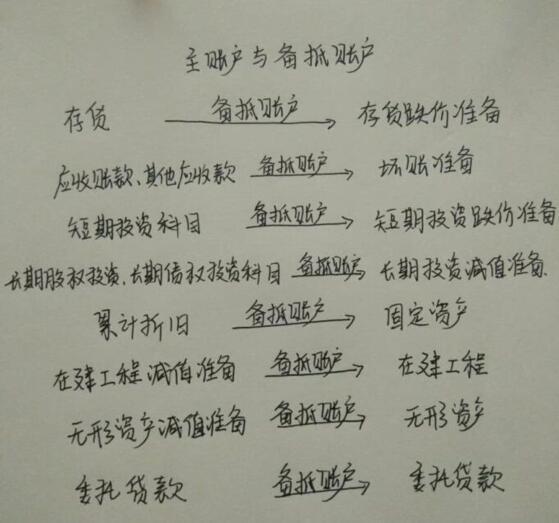 主账户与备抵账户
存货 备抵账户 存货跌价准备
应收账款、其他应收款 备抵账户 坏账准备
短期投资科目 备抵账户 短期投资跌价准备
长期股权投资、长期债权投资科目 备抵账户 长期投资减值准备.
累计折旧 备抵账户 固定资产
在建工程减值准备 备抵账户 在建工程
无形资产减值准备 备抵账户 无形资产
委托贷款 备抵账户 委托贷款